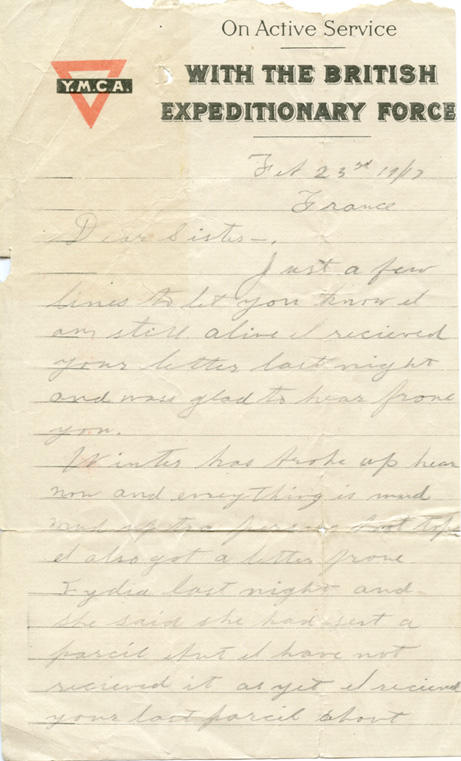 On Active Service
Y.M.C.A.
WITH THE BRITISH
EXPEDITIONARY FORCE
Feb 23rd 1917
France
Dear Sister-.
Just a few
lines to let you know I
am still alive I recieved
your letter last night
and was glad to hear from
you.
Winter has broke up hear
now and everything is mud
mud up to a persons boot tops
I also got a letter from
Lydia last night and
she said she had sent a
parcil but I have not
recieved it as yet I recieved
your last parcil about